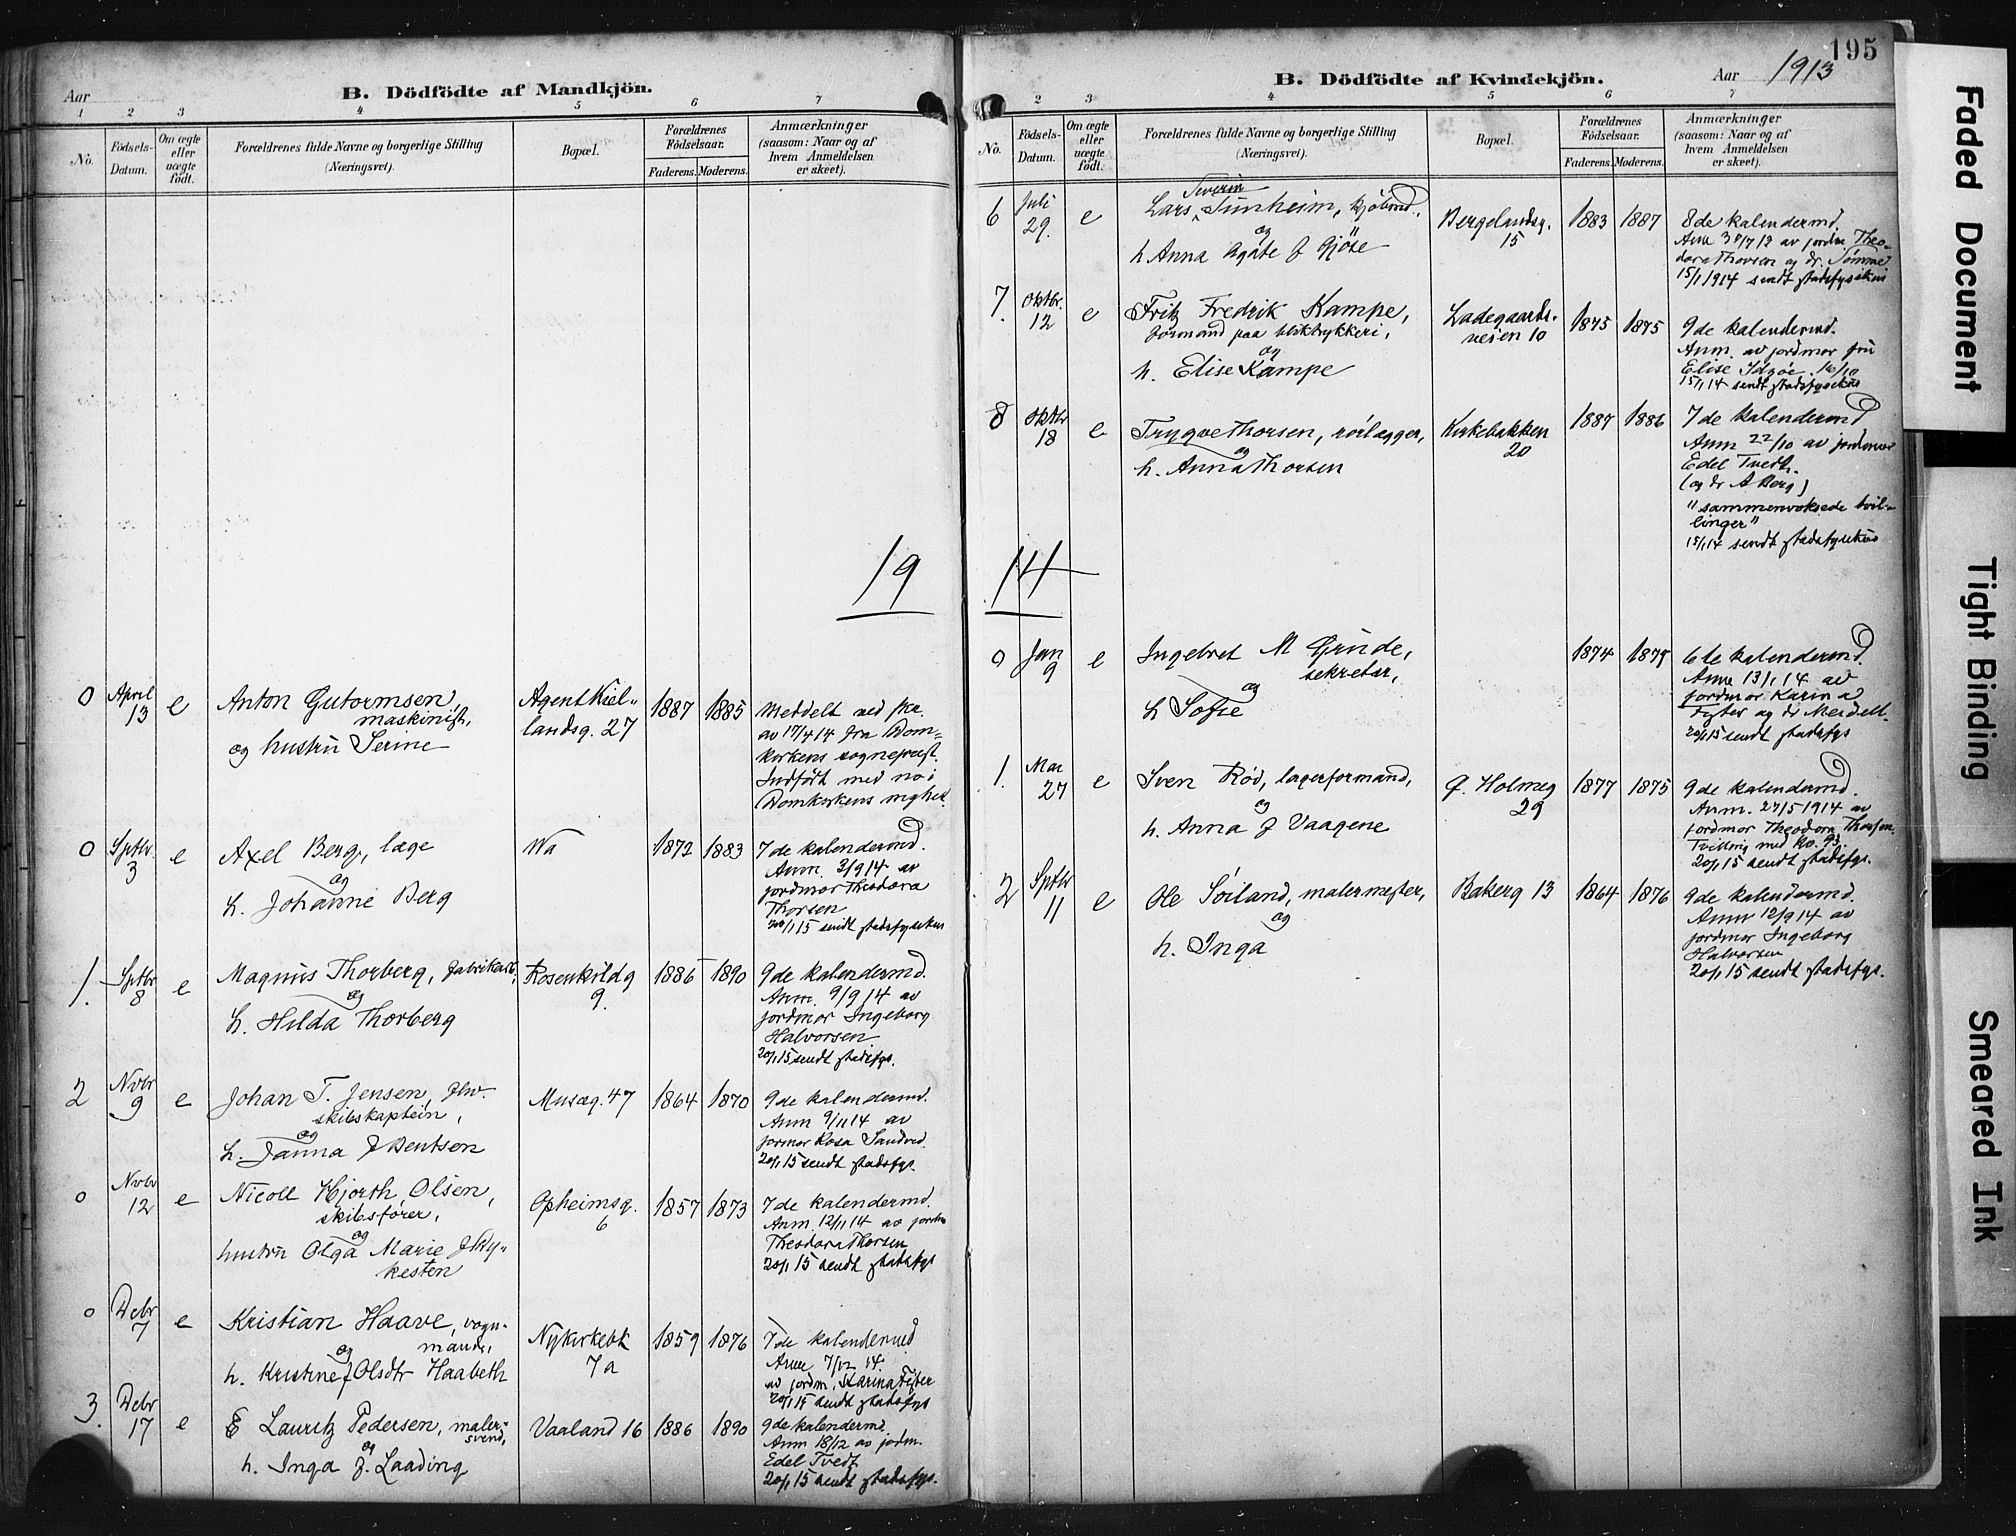 Aar
B. Dödfödte af Mandkjön.
1 2 3 4 5 6 7
No.
Födsels-
Datum.
Om ægte
eller
uægte
födt.
Forældrenes fulde Navne og borgerlige Stilling
(Næringsvei).
Bopæl.
Forældrenes
Födselsaar.
Faderens. Moderens.
Anmærkninger
(saasom: Naar og af
hvem Anmeldelsen
er skeet).
19
0 April 13 e Anton Gutormsen, maskinist,
og hustru Serine
Agent Kiel-
landsg. 27
1887 1885
Meddelt ved skr.
av 17/4 14 fra Dom-
kirkens sogneprest.
Indført med no i
Domkirkens mghet.
0 Sptbr. 3 e Axel Berg, læge
og
h. Johanne Berg
Wa
1872 1883
7de kalendermd.
Anm. 3/9 14 av
jordmor Theodora
Thorsen
20/1 15 sendt stadsfysikus
1. Sptbr 8 e Magnus Thorberg, fabrikarb,
og
h. Hilda Thorberg
Rosenkildg
9.
1886 1890
9de kalendermd.
Anm. 9/9 14 av
jordmor Ingeborg
Halvorsen
20/1 15 sendt stadsfys.
2 Nvbr 9 e Johan T. Jensen, fhv.
skibskaptein,
og
h. Janna f Bentsen
Musæg. 47
1864 1870
9de kalendermd.
Anm 9/11 14 av
jormor Rosa Sandved.
20/1 15 sendt stadsfys.
0 Nvbr 12 e Nicoll Hjorth Olsen,
skibsfører,
og
hustru Olga Marie f Ry-
kesten
Opheimsg.
6
1857 1873
7de kalendermd.
Anm. 12/11 14 av jordm
Theodora Thorsen
20/1 15 sendt stadsfys
0 Debr 7 e Kristian Haave, vogn-
mand,
og
h. Kristine f Olsdtr Haabeth
Nykirkebk
7a
1859 1876
7de kalendermd
Anm 7/12 14.
av jordm. Karina Fister
20/1 15 sendt stadsfys
3. Debr 17 e E Lauritz Pedersen, maler-
svend,
og
h. Inga f. Laading
Vaaland 16
1886 1890
9de kalendermd.
Anm 18/12 av jordm.
Edel Tvedt
20/1 15 sendt stadsfys.
195
B. Dödfödte af Kvindekjön.
Aar 1913
2 3 4 5 6 7
No.
Födsels-
Datum.
Om ægte
eller
uægte
födt.
Forældrenes fulde Navne og borgerlige Stilling
(Næringsvei).
Bopæl.
Forældrenes
Födselsaar.
Faderens. Moderens.
Anmærkninger
(saasom: Naar og af
hvem Anmeldelsen
er skeet).
6 Juli 29. e Lars Severin Sunheim, kjøbmd.,
og
h Anna Agate f Gjöse
Bergelandsg.
15
1883 1887
8de kalendermd.
Anm 30/7 13 av jordm. Theo-
dora Thorsen og dr. Sømme
15/1 1914 sendt stadsfysikus
7. Oktbr. 12 e Fritz Fredrik Kampe,
formand paa bliktrykkeri,
og
h. Elise Kampe
Ladegaards-
veien 10
1875 1875
9de kalendermd.
Anm. av jordmor fru
Elise Idsøe 14/10
15/1 14 sendt stadsfysikus
8 Oktbr 18 e Trygve Thorsen, rörlægger,
og
h. Anna Thorsen
Kirkebakken
20
1887 1886
7de kalendermd
Anm 22/10 av jordmor
Edel Tvedt.
(og dr A Berg)
"sammenvoksede tvil-
linger"
15/1 14 sendt stadsfysikus
14
0 Jan 9 e Ingebret M Grude,
sekretær,
og
h Sofie
1874 1875
6te kalendermd.
Anm 13/1 14 av
jordmor Karina
Fister og dr Meidell.
20/1 15 sendt stadsfys
1. Mai 27 e Sven Rød, lagerformand,
og
h. Anna f Vaagene
G. Holmeg
29
1877 1875
9de kalendermd.
Anm. 27/5 1914 av
jordmor Theodora Thorsen.
Tvilling med No. 93.
20/1 15 sendt stadsfys.
2 Sptbr 11 e Ole Söiland, malermester,
og
h. Inga
Bakerg 13
1864 1876
9de kalendermd.
Anm 12/9 14 av
jordmor Ingeborg
Halvorsen
20/1 15 sendt stadsfys.
Faded Document
Tight Binding
Smeared Ink